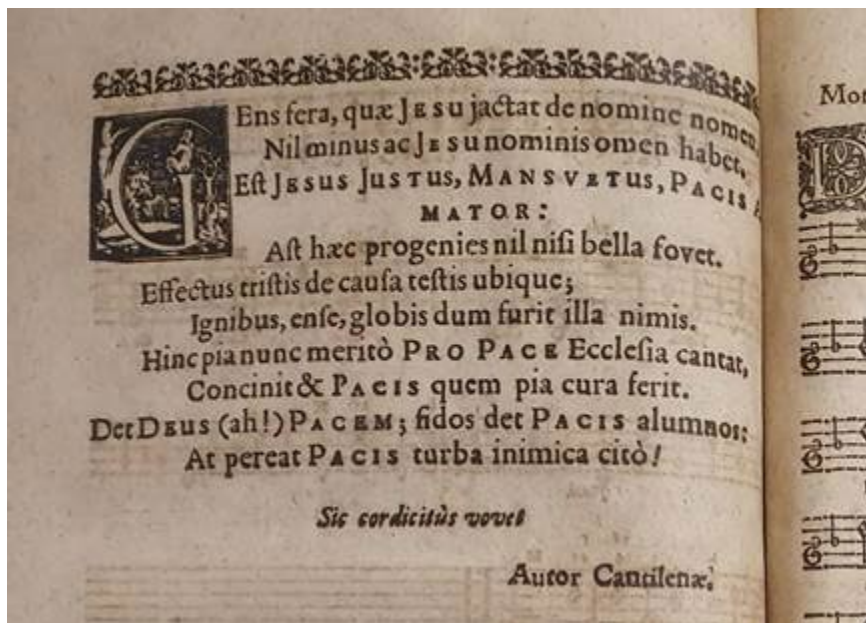 GEns fera, quæ JESU jactat de nomine nomen,
Nil minus ac JESU nominis omen habet.
Eſt JESUS JUSTUS, MANSVETUS, PACIS A-
MATOR:
Aſt hæc progenies nil niſi bella fovet.
Effectus triſtis de cauſa teſtis ubique;
Ignibus, enſe, globis dum furit illa nimis.
Hinc pia nunc meritò PRO PACE Eccleſia cantat,
Concinit & PACIS quem pia cura ferit.
Det DEUS (ah!) PACEM; fidos det PACIS alumnos:
At pereat PACIS turba inimica citò!
Sic cordicitùs vovet
Autor Cantilenæ.
Mot